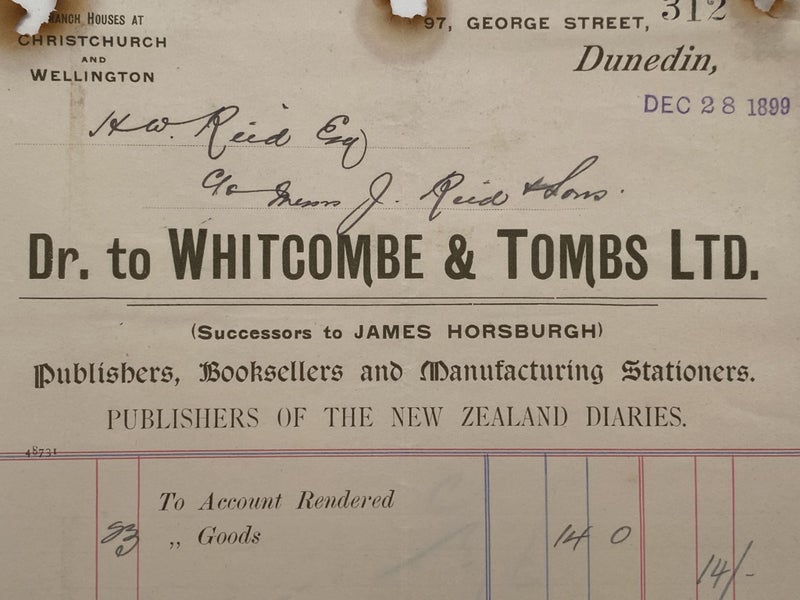 BRANCH HOUSES AT
CHRISTCHURCH
AND
WELLINGTON
97, GEORGE STREET, 312
Dunedin,
DEC 28 1899
H W. Reid Esq
c/o Messrs J. Reid & Sons.
DR. TO WHITCOMBE & TOMBS LTD.
(Successors to JAMES HORSBURGH)
Publishers, Booksellers and Manufacturing Stationers.
PUBLISHERS OF THE NEW ZEALAND DIARIES.
48731
To Account Rendered
„ Goods 14 0
14/-